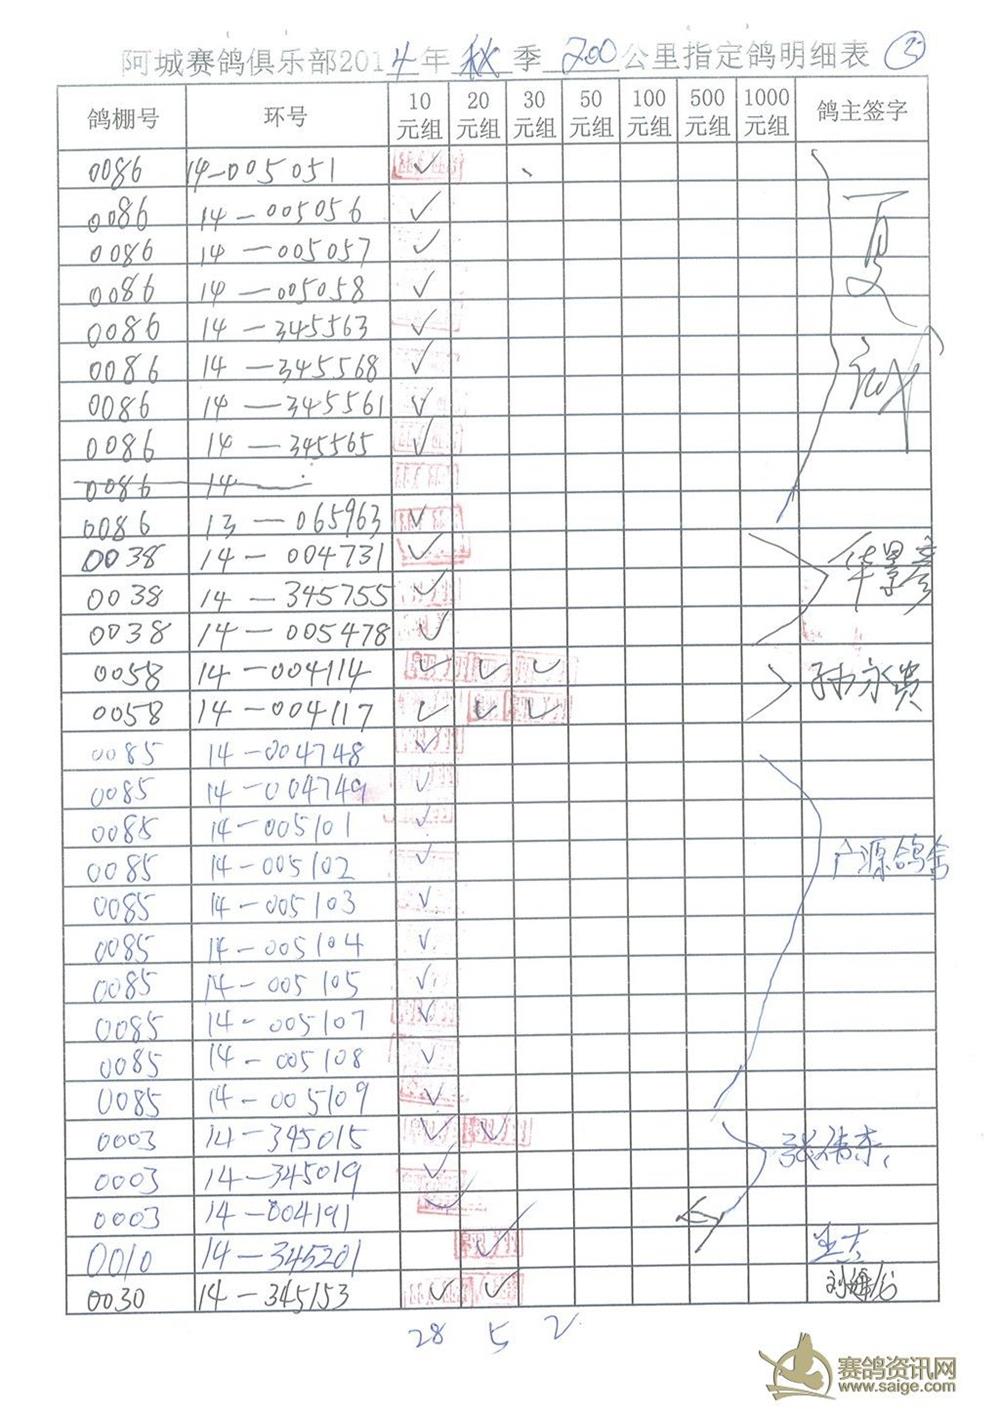 阿城赛鸽俱乐部2014年 秋 季 200 公里指定鸽明细表 ②
鸽棚号 环号 10元组 20元组 30元组 50元组 100元组 500元组 1000元组 鸽主签字
0086 14-005051 ✓
0086 14-005056 ✓
0086 14-005057 ✓
0086 14-005058 ✓
0086 14-345563 ✓
0086 14-345568 ✓
0086 14-345561 ✓
0086 14-345565 ✓
0086 14-
0086 13-065963 ✓
0038 14-004731 ✓ 华景彦
0038 14-345755 ✓
0038 14-005478 ✓
0058 14-004114 ✓ ✓ ✓ 孙永贵
0058 14-004117 ✓ ✓ ✓
0085 14-004748 ✓
0085 14-004749 ✓
0085 14-005101 ✓
0085 14-005102 ✓ 广源鸽舍
0085 14-005103 ✓
0085 14-005104 ✓
0085 14-005105 ✓
0085 14-005107 ✓
0085 14-005108 ✓
0085 14-005109 ✓
0003 14-345015 ✓ ✓ 张伟东
0003 14-345019 ✓
0003 14-004191 ✓
0010 14-345201 ✓
0030 14-345153 ✓ ✓
28 5 2
赛鸽资讯网
www.saige.com